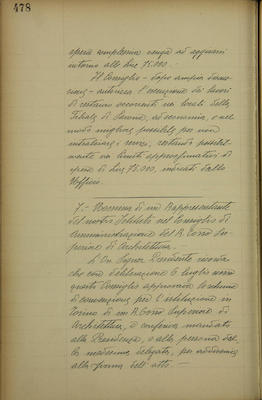 478
opera complessiva venga ad aggirarsi
intorno alle lire 75.000. -
Il Consiglio - dopo ampia
autorizza l'esecuzione dei lavori
di restauro occorrenti nei locali della
Filiale di Savona, ad economia, e nel
modo migliore possibile per non
i servizi, restando possibil-
mente nei limiti approssimativi di
spesa di Lire 75.000, indicati dallo
Ufficio.
7. - Nomina di un Rappresentante
del nostro Istituto nel Consiglio di
amministrazione del R. Corso Su-
periore di Architettura.
L'On. Signor Presidente ricorda
che con deliberazione 6 luglio
questo Consiglio approvava lo schema
di convenzione per l'istituzione in
Torino di un R. Corso Superiore di
Architettura, e conferiva mandato
alla Presidenza, o alla persona dal-
la medesima delegata, per addivenire
alla firma dell'atto. -